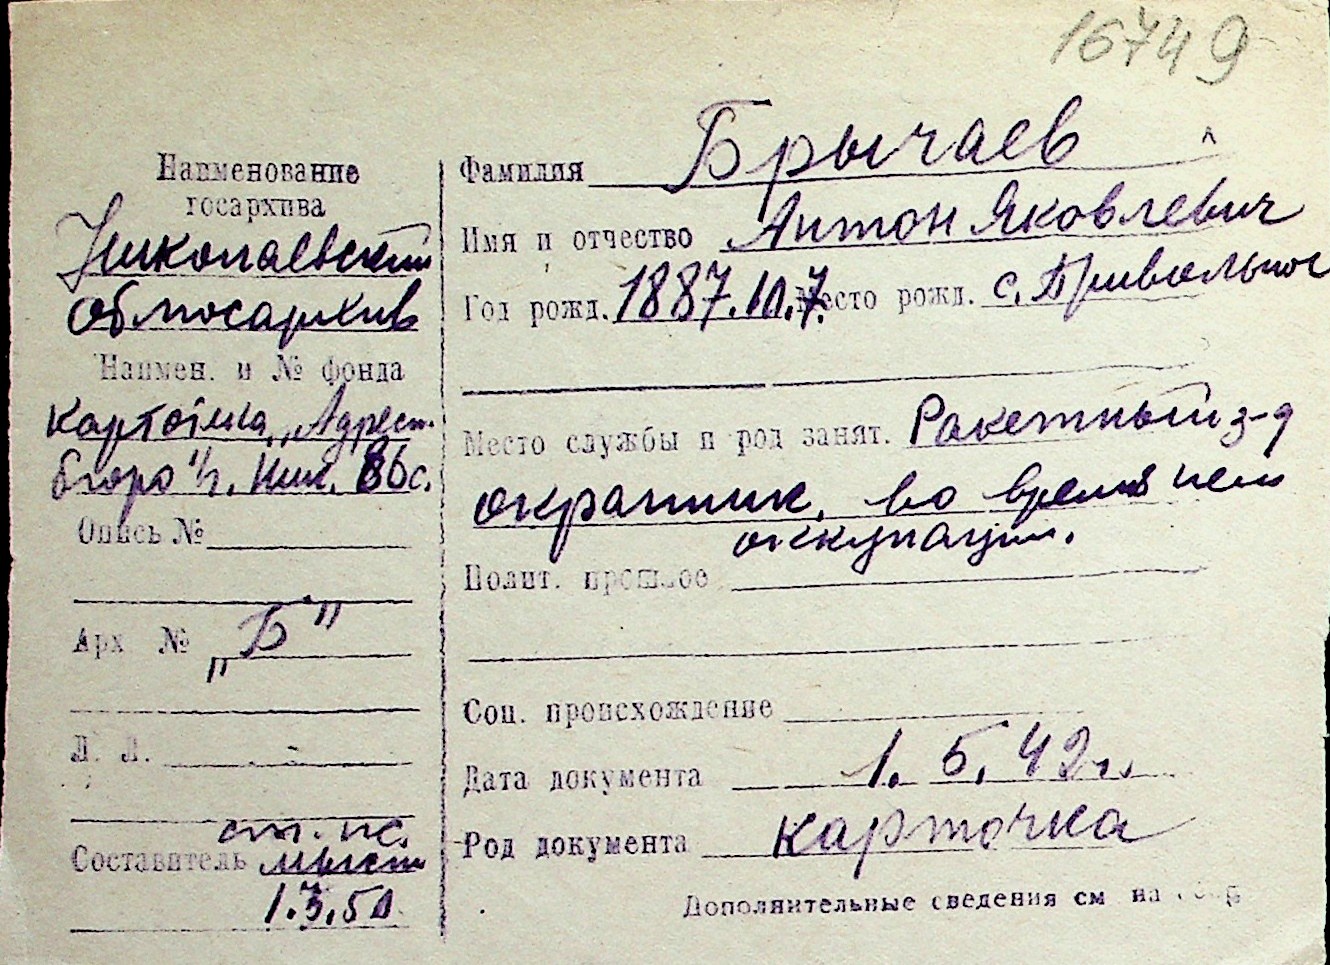 16749
Наименование
госархива
Николаевский
облгосархив
Наимен. и № фонда
картотека „Адресн.
бюро" г. Ник. 86с.
Опись №
Арх №
„Б"
Л. Л.
ст. нс.
Составитель
1.3.50
Фамилия Брычаев
Имя и отчество Антон Яковлевич
Год рожд. 1887.10.7. Место рожд. с. Привольное
Место службы и род занят. Ракетный з-д
охранник, во время нем
оккупации.
Полит. прошлое
Соц. происхождение
Дата документа 1. 5. 42г.
Род документа карточка
Дополнительные сведения см на обор